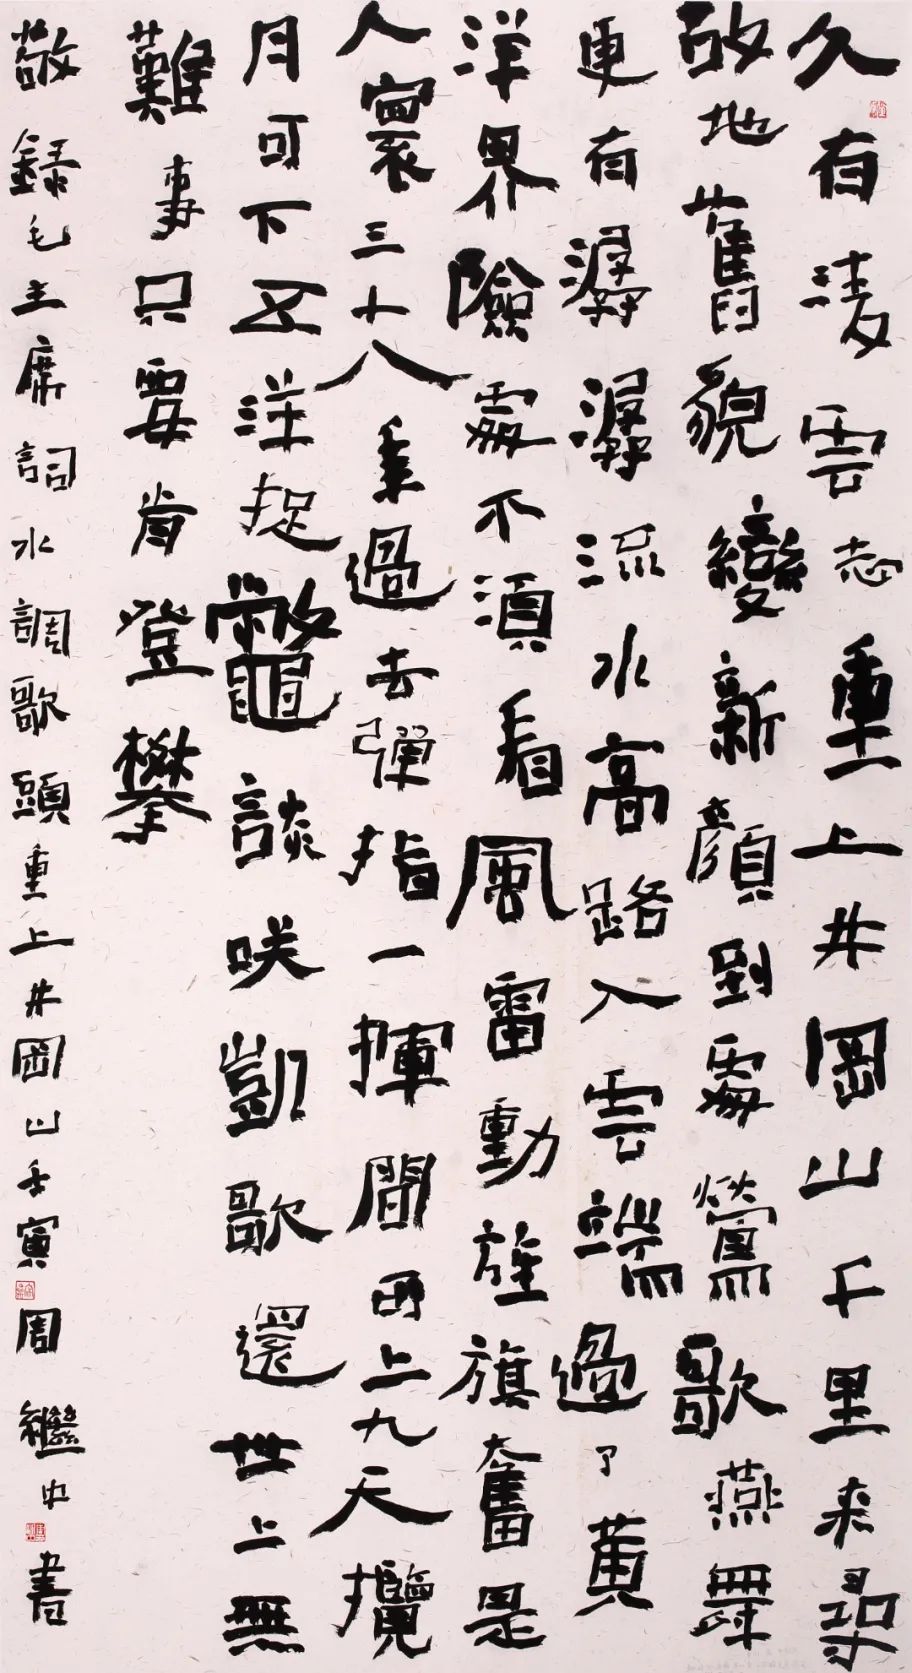 久有淩雲志重上井岡山千里来尋
故地舊貌變新顏到處鶯歌燕舞
更有潺潺流水高路入雲端過了黃
洋界險處不須看風雷動旌旗奮是
人寰三十八年過去彈指一揮間可上九天攬
月可下五洋捉鼈談咲凱歌還世上無
難事只要肯登攀
敬録毛主席詞水調歌頭重上井岡山壬寅周繼中書